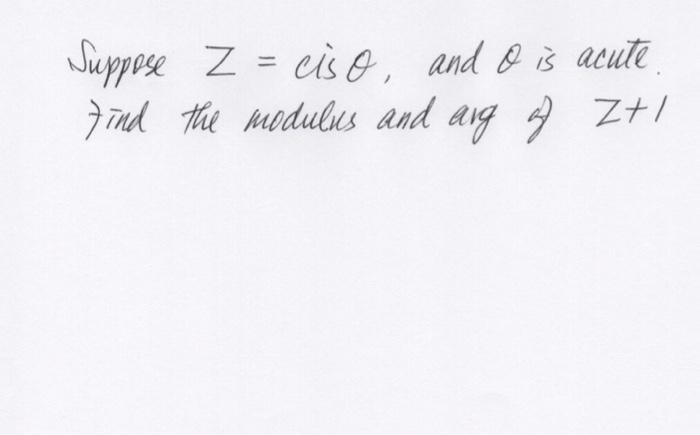 Suppose Z = cis θ, and θ is acute.
Find the modulus and arg of Z+1